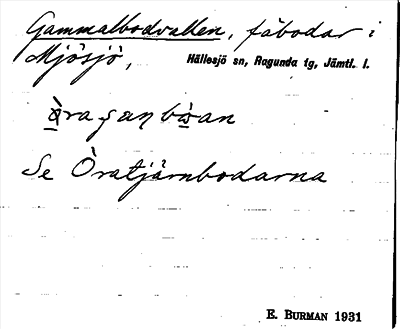 Gammalbodvallen, fäbodar i
Mjösjö, Hällesjö sn, Ragunda tg, Jämtl. l.
Se Òratjärnbodarna
E. BURMAN 1931